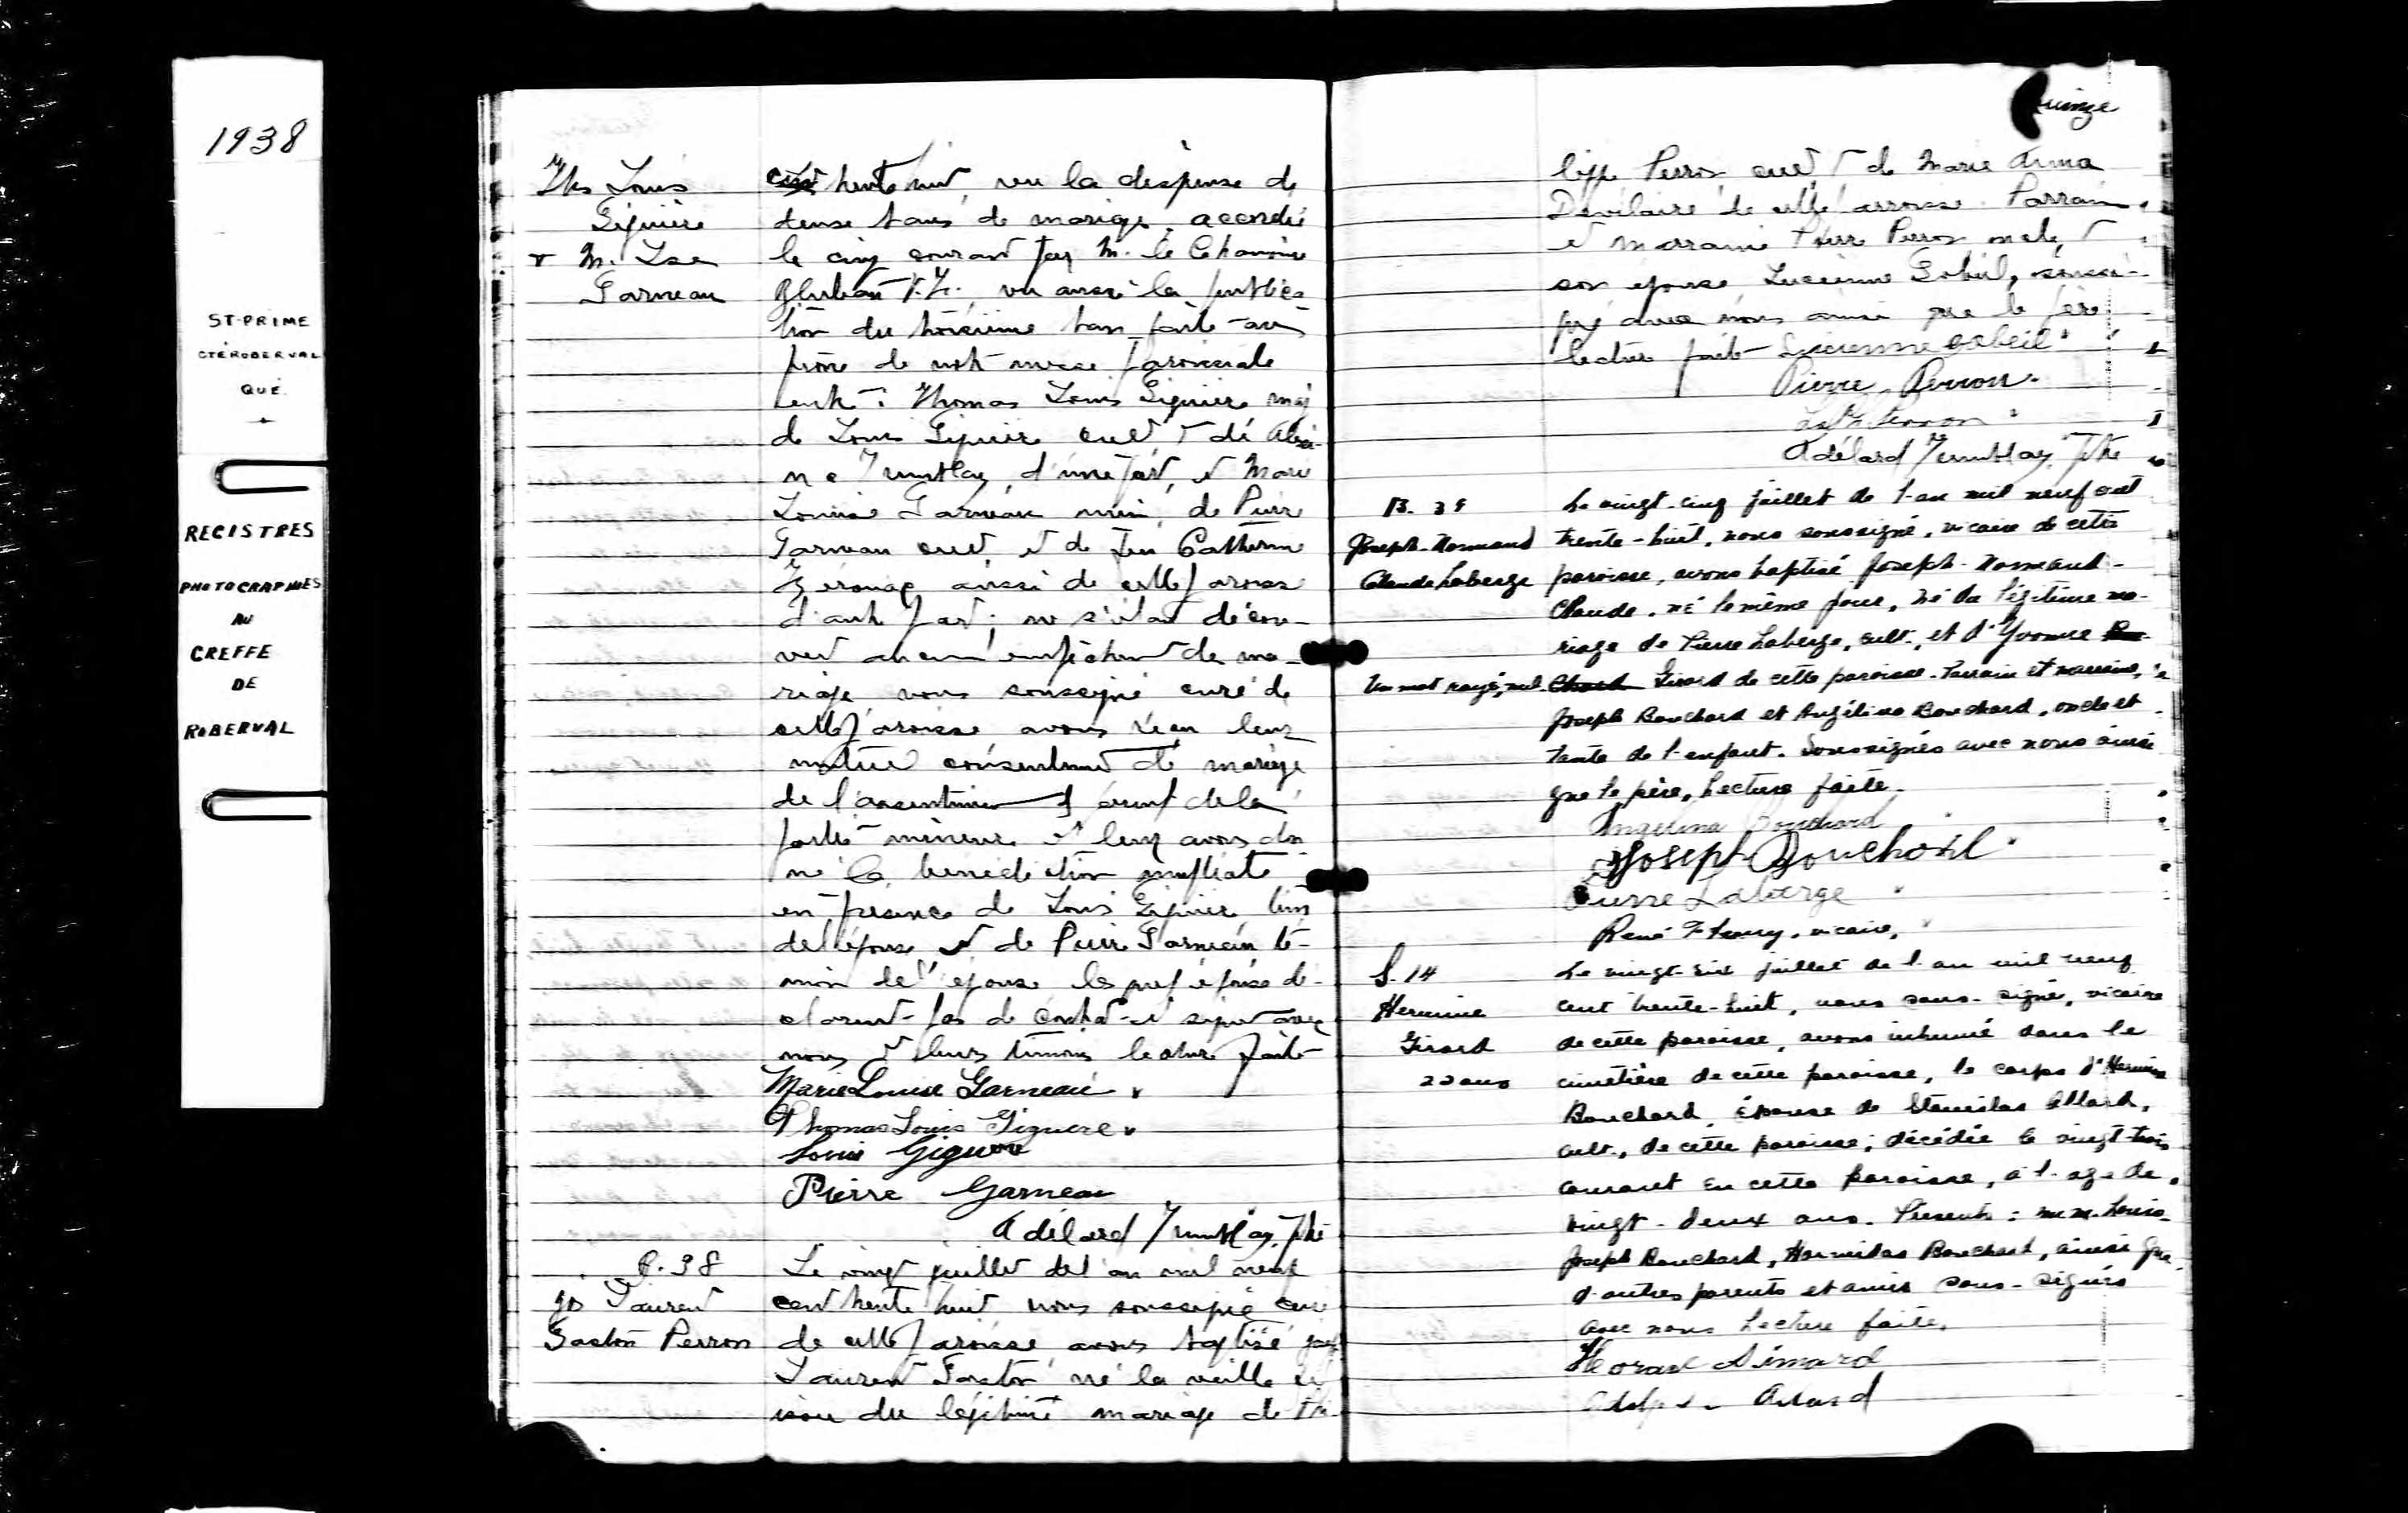 1938
ST-PRIME
CTÉ ROBERVAL
QUÉ.
REGISTRES
PHOTOGRAPHIÉS
AU
GREFFE
DE
ROBERVAL
Ths Louis
Giguère
& M. Lse
Garneau
cent trente huit, vu la dispense de
deux bans de mariage accordée
le cinq courant par M. le Chanoine
vu aussi la publica-
tion du troisième ban faite au
prône de notre messe paroissiale
entre: Thomas Louis Giguère maj
de Louis Giguère cult & de
Tremblay, d'une part, et Marie
Louise Garneau min. de Pierre
Garneau cult et de feu Catherine
aussi de cette paroisse
d'autre part; ne s'étant décou-
vert aucun empêchement de ma-
riage nous soussigné curé de
cette paroisse avons reçu leur
mutuel consentement de mariage
de l'assentiment de la
partie mineure et leur avons don
né la bénédiction nuptiale
en présence de Louis Giguère tém
de l'époux et de Pierre Garneau té-
moin de l'épouse les préf époux dé-
clarent pas de contrat et signent avec
nous & leurs témoins lecture faite
Marie Louise Garneau
Thomas Louis Giguere
Louis Giguere
Pierre Garneau
Adélard Tremblay, Ptre
B. 38
Js Laurent
Gaston Perron
Le vingt juillet de l'an mil neuf
cent trente huit nous soussigné curé
de cette paroisse avons baptisé Jos
Laurent Gaston né la veille et
issu du légitime mariage de
Quinze
Perron cult & de Marie Anna
de cette paroisse. Parrain
et marraine Pierre Perron oncle &
son épouse Lucienne Gobeil, soussi-
gné avec nous ainsi que le père
lecture faite Lucienne Gobeil
Pierre Perron
Perron
Adélard Tremblay, Ptre
B. 39
Joseph-Normand
Claude Laberge
Un mot rayé, nul.
Le vingt-cinq juillet de l'an mil neuf cent
trente-huit, nous soussigné, vicaire de cette
paroisse, avons baptisé Joseph-Normand-
Claude, né le même jour, né du légitime ma-
riage de Pierre Laberge, cult., et d'Yvonne
Girard de cette paroisse. Parrain et marraine,
Joseph Bouchard et Angélina Bouchard, oncle et
tante de l'enfant. Soussignés avec nous ainsi
que le père. Lecture faite.
Angelina Bouchard
Joseph Bouchard
Pierre Laberge
René Fleury, vicaire,
S. 14
Hermine
Girard
22 ans
Le vingt-six juillet de l'an mil neuf
cent trente-huit, nous sous-signé, vicaire
de cette paroisse, avons inhumé dans le
cimetière de cette paroisse, le corps d'Hermine
Bouchard, épouse de Stanislas Allard,
cult., de cette paroisse; décédée le vingt-trois
courant en cette paroisse, à l'age de
vingt-deux ans. Présents: mm. Louis-
Joseph Bouchard, Hormidas Bouchard, ainsi que
d'autres parents et amis sous-signés
avec nous Lecture faite.
Simard
Allard